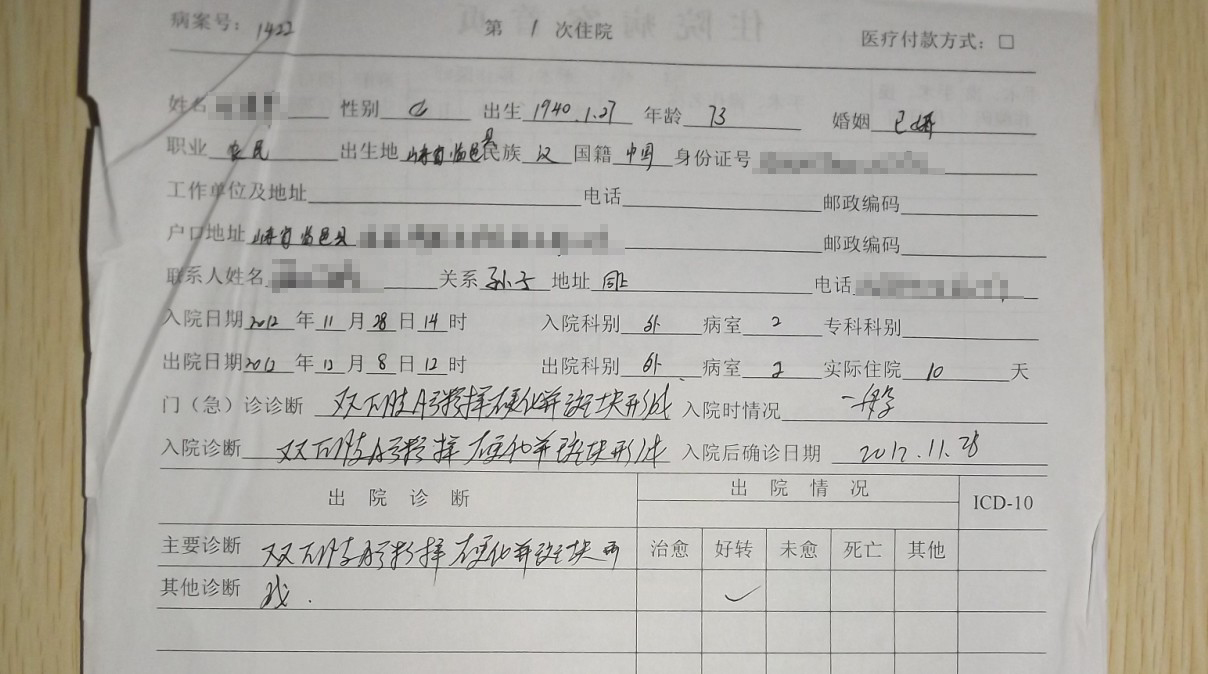 病案号：1422 第 1 次住院 医疗付款方式：□
姓名 性别 出生 1940.1.27 年龄 73 婚姻 已婚
职业 农民 出生地 山东省临邑县 民族 汉 国籍 中国 身份证号
工作单位及地址 电话 邮政编码
户口地址 山东省临邑县 邮政编码
联系人姓名 关系 孙子 地址 同上 电话
入院日期 2012 年 11 月 28 日 14 时 入院科别 外 病室 2 专科科别
出院日期 2012 年 12 月 8 日 12 时 出院科别 外 病室 2 实际住院 10 天
门（急）诊诊断 双下肢 硬化并斑块形成 入院时情况 一般
入院诊断 双下肢 硬化并斑块形成 入院后确诊日期 2012.11.28
出院诊断 出院情况 ICD-10
主要诊断 双下肢 硬化并斑块形 治愈 好转 未愈 死亡 其他
其他诊断 成. ✓